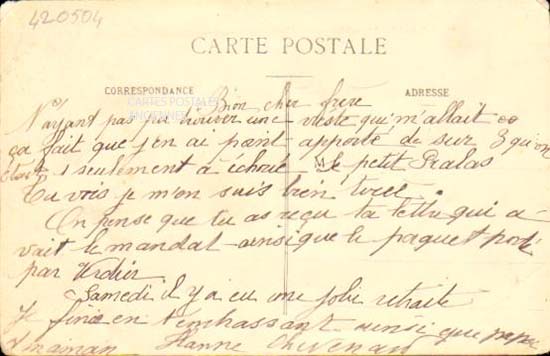 420504
CARTE POSTALE
CORRESPONDANCE
ADRESSE
CARTES POSTALES
ANCIENNES
Bien cher frère
N'ayant pas pu trouver une veste qui m'allait
ça fait que j'en ai point apporté de sur 3 qu'on
était 1 seulement à échoué M le petit Gralas
Tu vois je m'en suis bien tiré
On pense que tu as reçu ta lettre qui a-
vait le mandat ainsi que le paquet porté
par Verdier
Samedi il y a eu une jolie retraite
Je finis en t'embrassant ainsi que papa
& maman